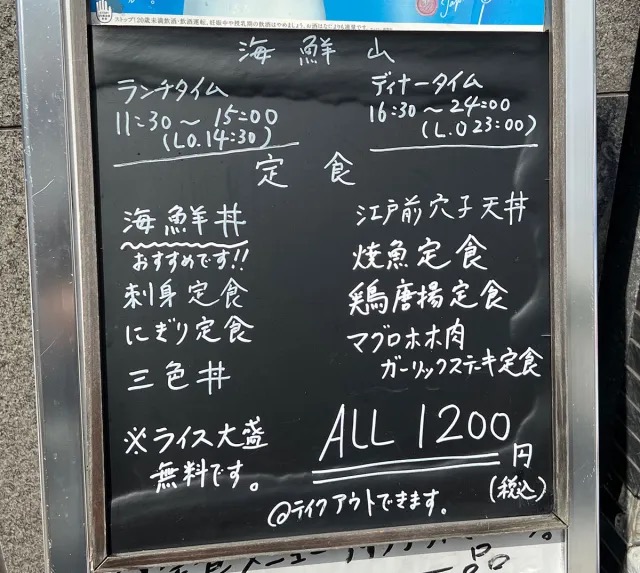 ストップ!20歳未満飲酒・飲酒運転。妊娠中や授乳期の飲酒はやめましょう。
海鮮山
ランチタイム
11:30～15:00
(L.O.14:30)
ディナータイム
16:30～24:00
(L.O 23:00)
定食
海鮮丼
おすすめです!!
刺身定食
にぎり定食
三色丼
江戸前穴子天丼
焼魚定食
鶏唐揚定食
マグロホホ肉
ガーリックステーキ定食
※ライス大盛
無料です。
ALL 1200円
(税込)
@テイクアウトできます。